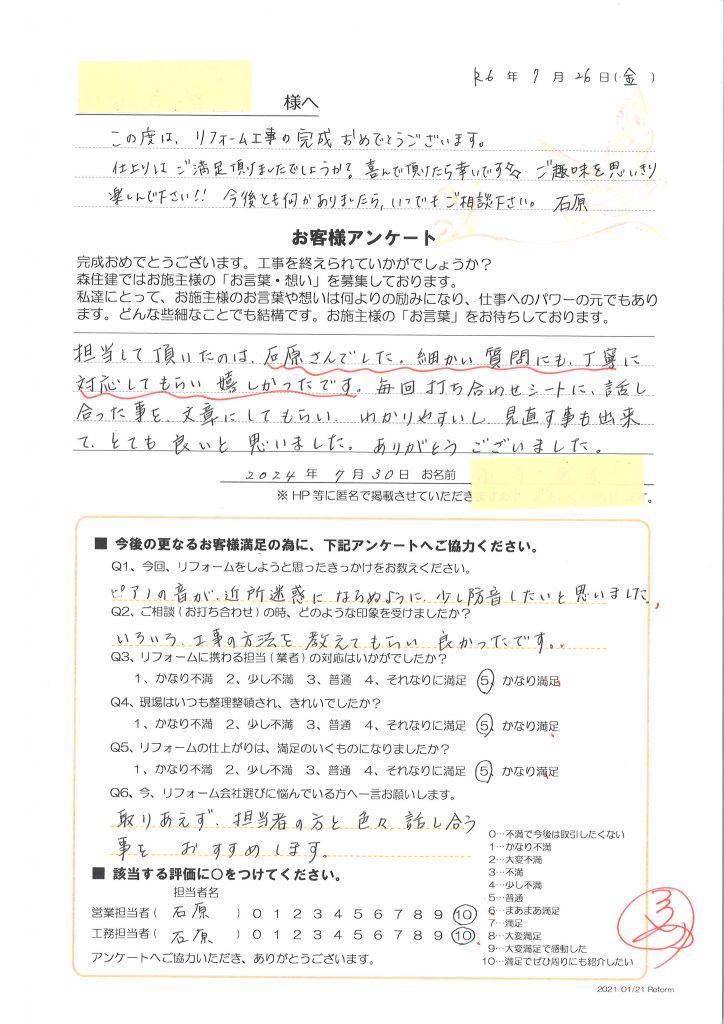 R6 年 7 月 26 日(金)
様へ
この度は、リフォーム工事の完成おめでとうございます。
仕上りはご満足頂けましたでしょうか？喜んで頂けたら幸いです ご趣味を思いきり
楽しんで下さい!! 今後とも何かありましたら、いつでもご相談下さい。 石原
お客様アンケート
完成おめでとうございます。工事を終えられていかがでしょうか？
森住建ではお施主様の「お言葉・想い」を募集しております。
私達にとって、お施主様のお言葉や想いは何よりの励みになり、仕事へのパワーの元でもあり
ます。どんな些細なことでも結構です。お施主様の「お言葉」をお待ちしております。
担当して頂いたのは、石原さんでした。細かい質問にも、丁寧に
対応してもらい嬉しかったです。毎回打ち合わせシートに、話し
合った事を、文章にしてもらい、わかりやすいし、見直す事も出来
て、とても良いと思いました。ありがとうございました。
2024 年 7 月 30 日 お名前
※ HP 等に匿名で掲載させていただき
■ 今後の更なるお客様満足の為に、下記アンケートへご協力ください。
Q1、今回、リフォームをしようと思ったきっかけをお教えください。
ピアノの音が、近所迷惑にならぬように、少し防音したいと思いました。
Q2、ご相談（お打ち合わせ）の時、どのような印象を受けましたか？
いろいろ、工事の方法を教えてもらい良かったです。
Q3、リフォームに携わる担当（業者）の対応はいかがでしたか？
1、かなり不満 2、少し不満 3、普通 4、それなりに満足 5、かなり満足
Q4、現場はいつも整理整頓され、きれいでしたか？
1、かなり不満 2、少し不満 3、普通 4、それなりに満足 5、かなり満足
Q5、リフォームの仕上がりは、満足のいくものになりましたか？
1、かなり不満 2、少し不満 3、普通 4、それなりに満足 5、かなり満足
Q6、今、リフォーム会社選びに悩んでいる方へ一言お願いします。
取りあえず、担当者の方と色々話し合う
事をおすすめします。
■ 該当する評価に○をつけてください。
担当者名
営業担当者（ 石原 ）0 1 2 3 4 5 6 7 8 9 10
工務担当者（ 石原 ）0 1 2 3 4 5 6 7 8 9 10
アンケートへご協力いただき、ありがとうございます。
0…不満で今後は取引したくない
1…かなり不満
2…大変不満
3…不満
4…少し不満
5…普通
6…まあまあ満足
7…満足
8…大変満足
9…大変満足で感動した
10…満足でぜひ周りにも紹介したい
2021/01/21 Reform